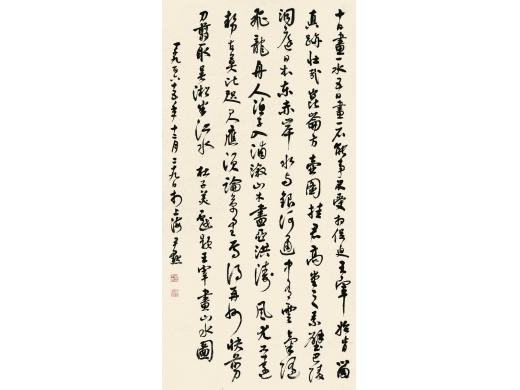 十日畫一水五日畫一石能事不受相促迫王宰始肯留
真跡壯哉崑崙方壺圖挂君高堂之素壁巴陵
洞庭日本東赤岸水与銀河通中有雲氣隨
飛龍舟人漁子入浦漵山木盡亞洪濤風尤工遠
勢古莫比咫尺應須論萬里焉得并州快剪
刀翦取吴淞半江水 杜子美戲題王宰畫山水圖
年十二月二十九日於上海 尹默